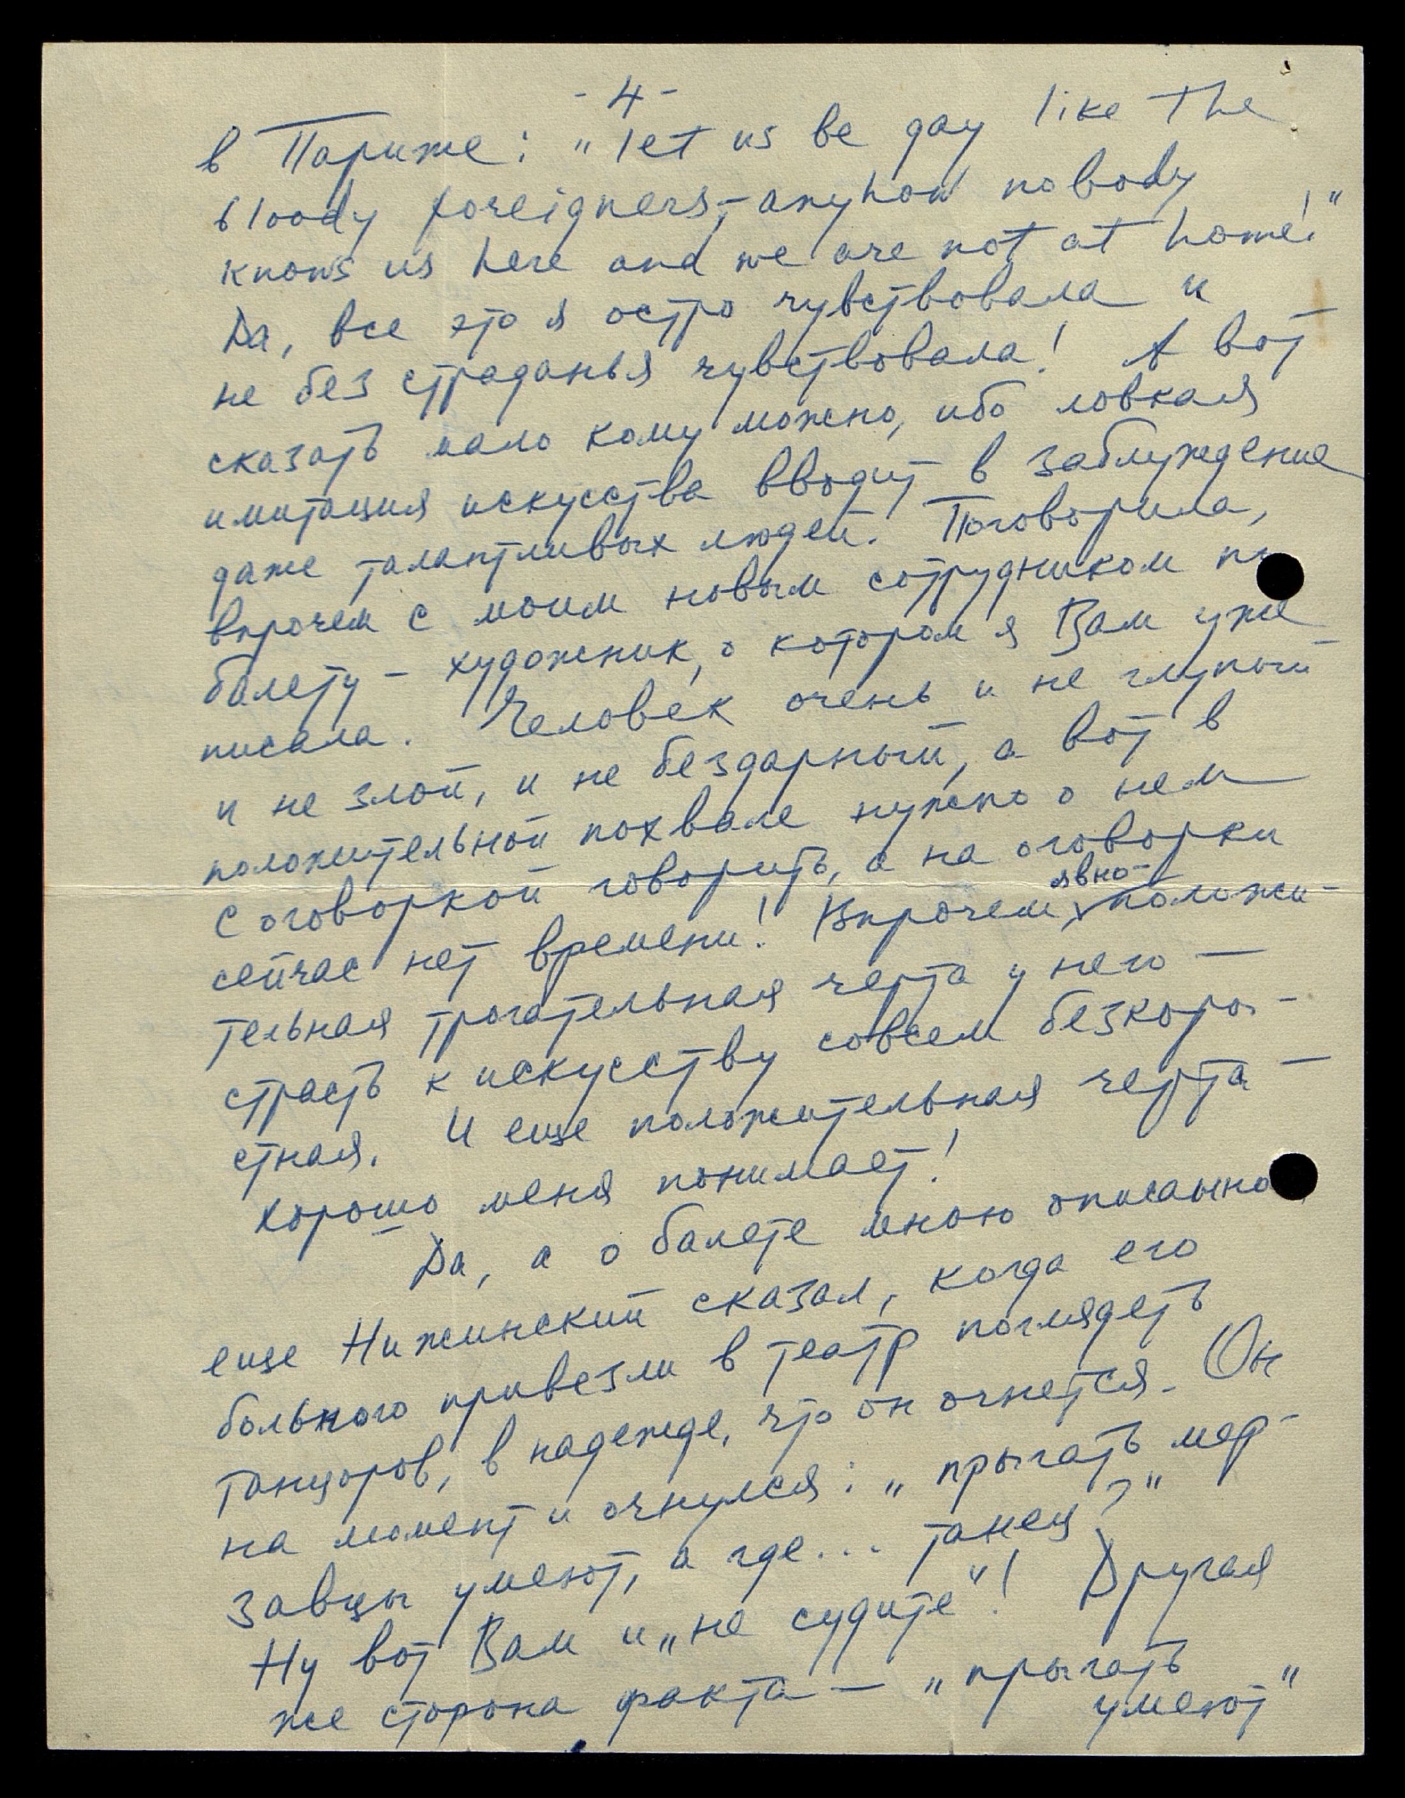 - 4 -
в Париже: „let us be gay like the
bloody foreigners, - anyhow nobody
knows us here and we are not at home!"
Да, все это я остро чувствовала и
не без страданья чувствовала! А вот
сказать мало кому можно, ибо ловкая
имитация искусства вводит в заблуждение
даже талантливых людей. Поговорила,
впрочем с моим новым сотрудником по
балету - художник, о котором я Вам уже
писала. Человек очень и не глупый
и не злой, и не бездарный, а вот в
положительной похвале нужно о нем
с оговоркой говорить, а на оговорки
сейчас нет времени! Впрочем, явно- положи-
тельная трогательная черта у него —
страсть к искусству совсем безкоры-
стная. И еще положительная черта —
хорошо меня понимает!
Да, а о балете мною описанно
еще Нижинский сказал, когда его
больного привезли в театр поглядеть
танцоров, в надежде, что он очнется. Он
на момент и очнулся: „прыгать мер-
завцы умеют, а где... танец?"
Ну вот Вам и „не судите"! Другая
же сторона факта — „прыгать
умеют"